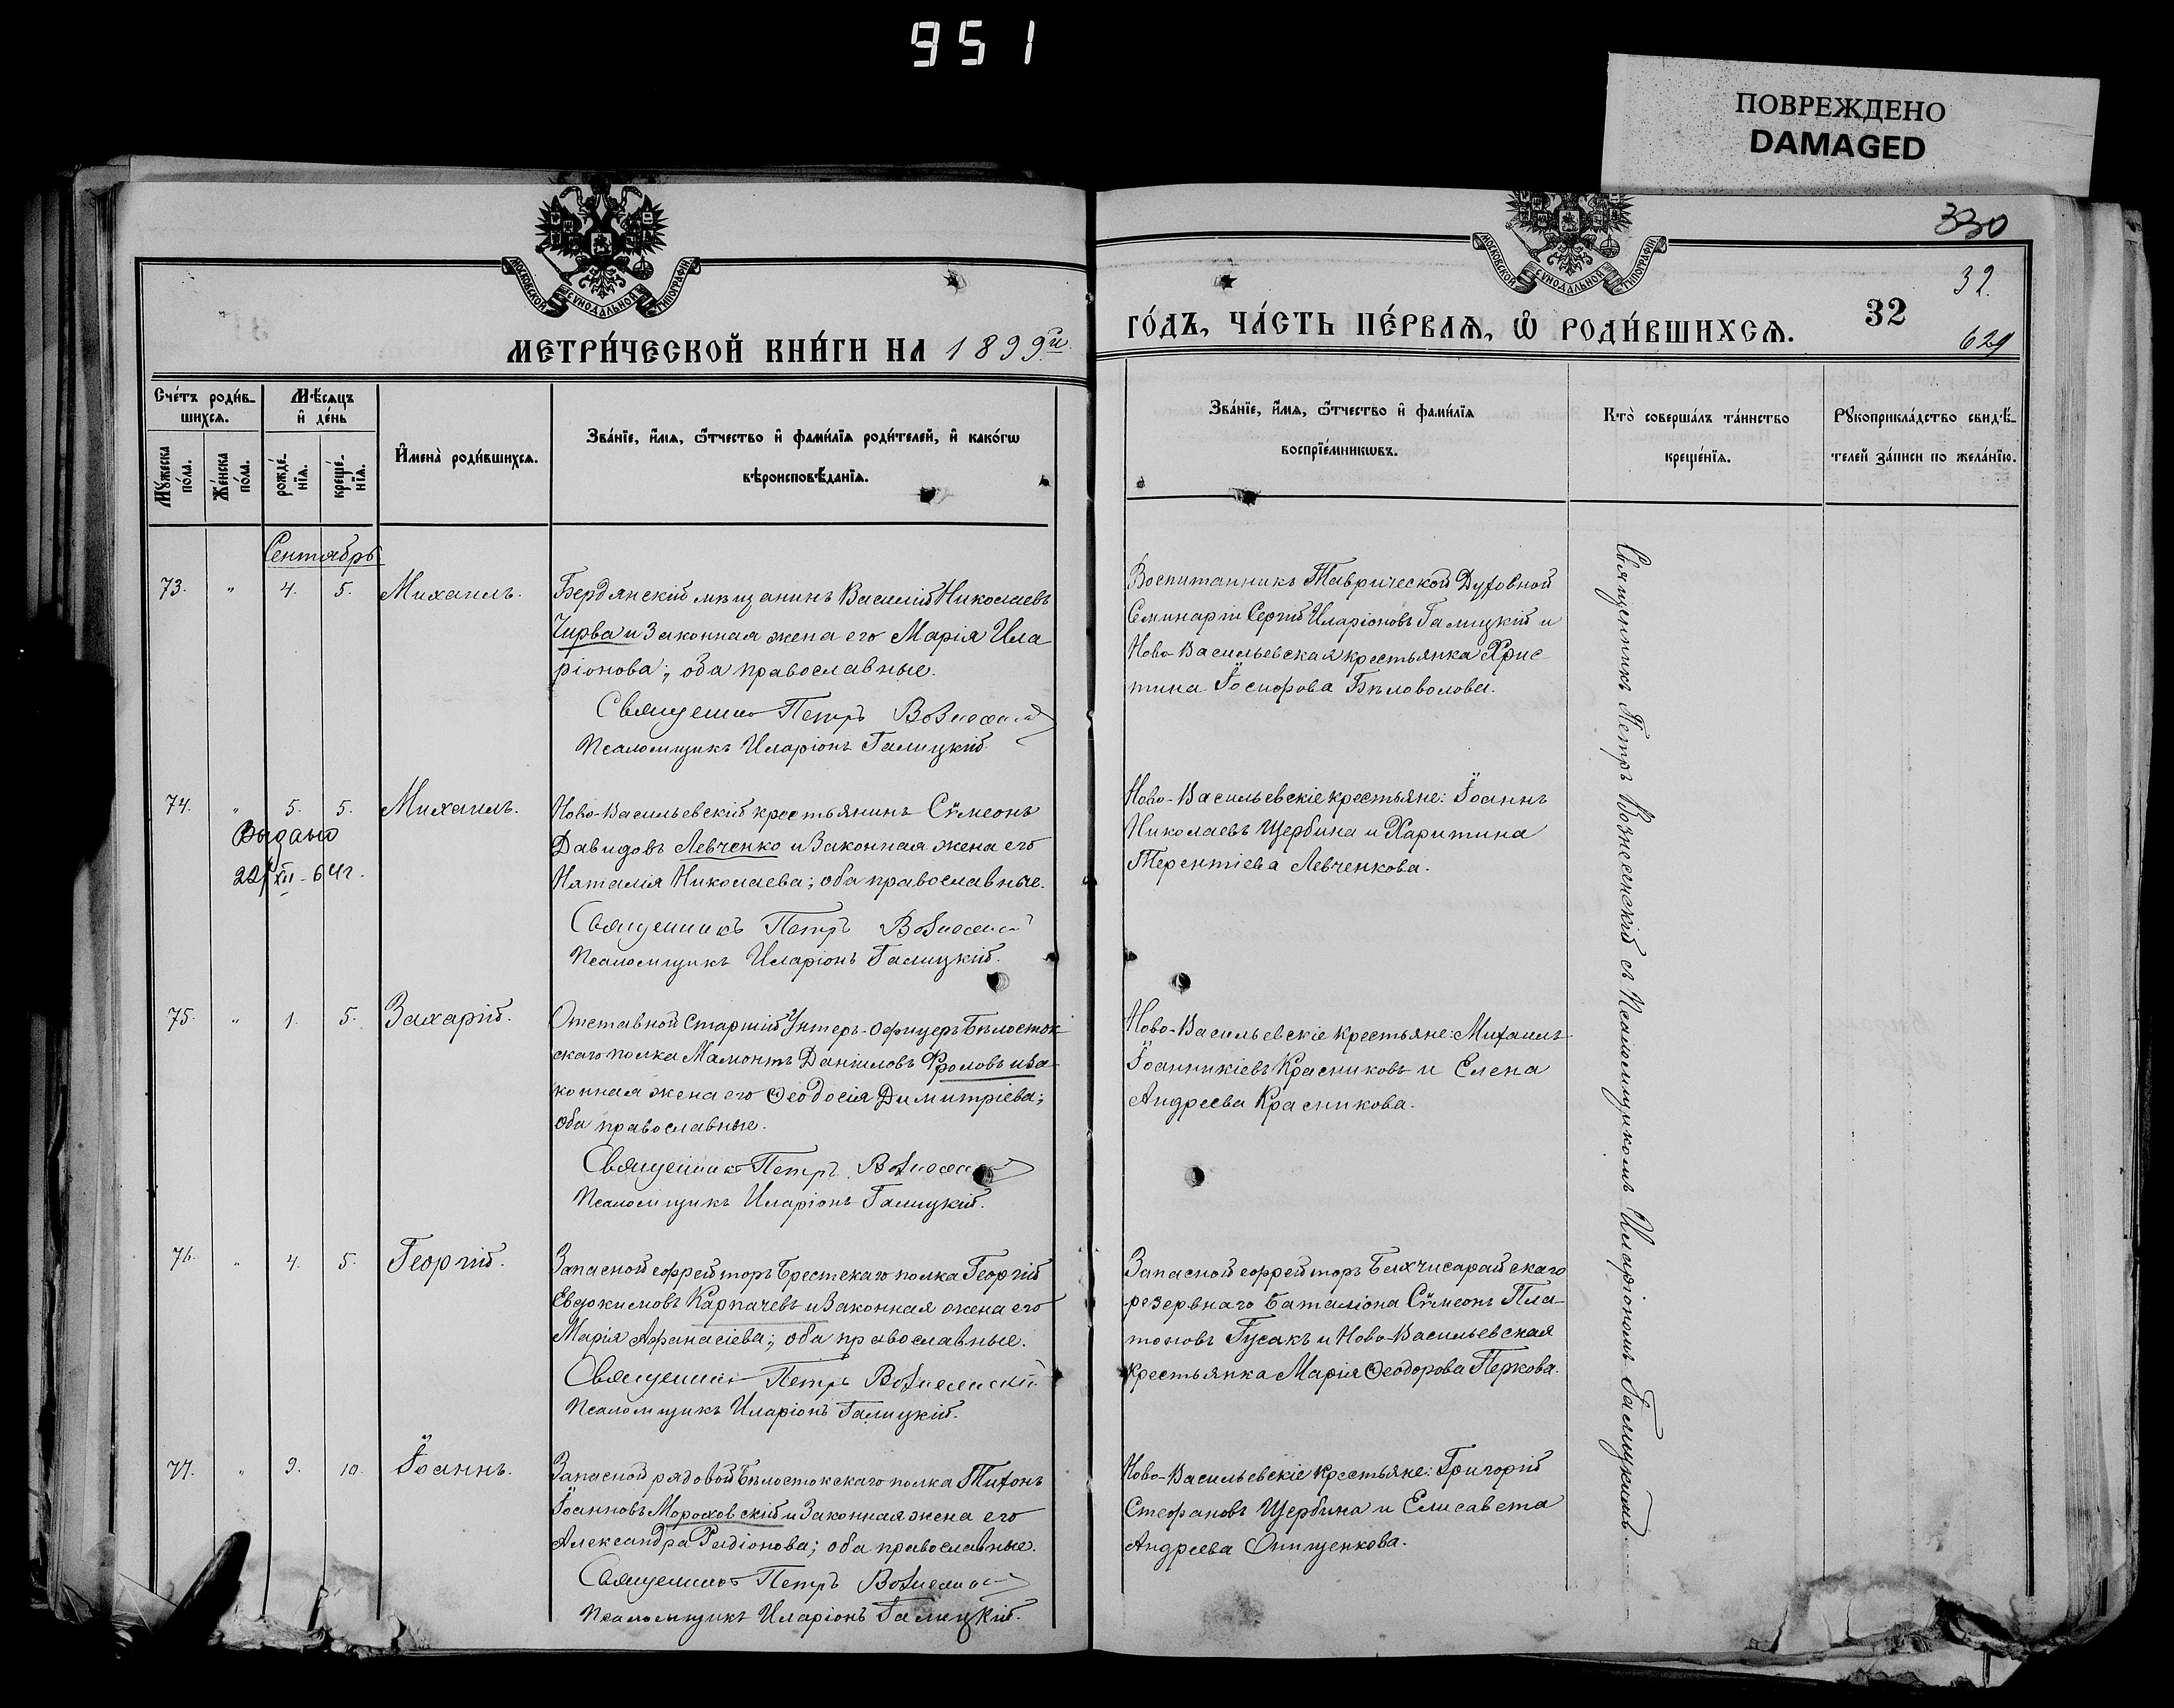 951
ПОВРЕЖДЕНО
DAMAGED
330
МОСКОВСКОЙ СѴНОДАЛЬНОЙ ТИПОГРАФІИ
МОСКОВСКОЙ СѴНОДАЛЬНОЙ ТИПОГРАФІИ
32.
32
629
МЕТРИ́ЧЕСКОЙ КНИ́ГИ НА 1899й
ГО́ДЪ, ЧА́СТЬ ПЕ́РВАЯ, Ѡ РОДИ́ВШИХСЯ.
Сче́тъ роди́в-
шихся.
Мѣ́сяцъ
и҆ де́нь
Мꙋ́жеска
по́ла.
Же́нска
по́ла.
рожде́-
нїя.
креще́-
нїя.
И҆мена̀ роди́вшихся.
Зва́нїе, и҆́мя, ѻ҆́тчество и҆ фами́лїя роди́телей, и҆ како́гѡ
вѣроисповѣ́данїя.
Зва́нїе, и҆́мя, ѻ҆́тчество и҆ фами́лїя
воспрїе́мникѡвъ.
Кто̀ соверша́лъ та́инство
креще́нїя.
Рꙋкоприкла́дство свидѣ́-
телей за́писи по жела́нїю.
Сентябрь
73. " 4. 5. Михаилъ.
Бердянскій мѣщанинъ Василій Николаевъ
Чирва и законная жена его Марія Ила-
ріонова; оба православные.
Священникъ Петръ Вознесенскій
Псаломщикъ Иларіонъ Галицкій.
Воспитанникъ Таврической Духовной
Семинаріи Сергій Иларіоновъ Галицкій и
Ново-Васильевская крестьянка Хрис-
тина Іосифова Бѣловолова.
74. " 5. 5. Михаилъ.
Выдано
22/XII-64г.
Ново-Васильевскій крестьянинъ Сѵмеонъ
Давидовъ Левченко и законная жена его
Наталія Николаева; оба православные.
Священникъ Петръ Вознесенскій
Псаломщикъ Иларіонъ Галицкій.
Ново-Васильевскіе крестьяне: Іоаннъ
Николаевъ Щербина и Харитина
Терентіева Левченкова.
75. " 1. 5. Захарій.
Отставной Старшій Унтеръ-Офицеръ Бѣлосток-
скаго полка Мамонтъ Даніиловъ Фроловъ и за-
конная жена его Ѳеодосія Димитріева;
оба православные.
Священникъ Петръ Вознесенскій
Псаломщикъ Иларіонъ Галицкій.
Ново-Васильевскіе крестьяне: Михаилъ
Іоанникіевъ Красниковъ и Елена
Андреева Красникова.
76. " 4. 5. Георгій.
Запасной ефрейторъ Брестскаго полка Георгій
Евдокимовъ Карпачевъ и законная жена его
Марія Афанасіева; оба православные.
Священникъ Петръ Вознесенскій
Псаломщикъ Иларіонъ Галицкій.
Запасной ефрейторъ Бахчисарайскаго
резервнаго баталіона Сѵмеонъ Пла-
тоновъ Гусакъ и Ново-Васильевская
крестьянка Марія Ѳеодорова Перкова.
77. " 9. 10. Іоаннъ.
Запасной рядовой Бѣлостокскаго полка Тихонъ
Іоанновъ Мороховскій и законная жена его
Александра Радіонова; оба православные.
Священникъ Петръ Вознесенскій
Псаломщикъ Иларіонъ Галицкій.
Ново-Васильевскіе крестьяне: Григорій
Стефановъ Щербина и Елисавета
Андреева Онищенкова.
Священникъ Петръ Вознесенскій съ Псаломщикомъ Иларіономъ Галицкимъ.